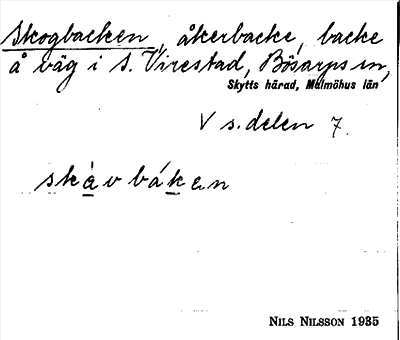 Skogbacken, åkerbacke, backe
å väg i S. Virestad, Bösarps sn,
Skytts härad, Malmöhus län
V s. delen 7.
skàvbáken
NILS NILSSON 1935